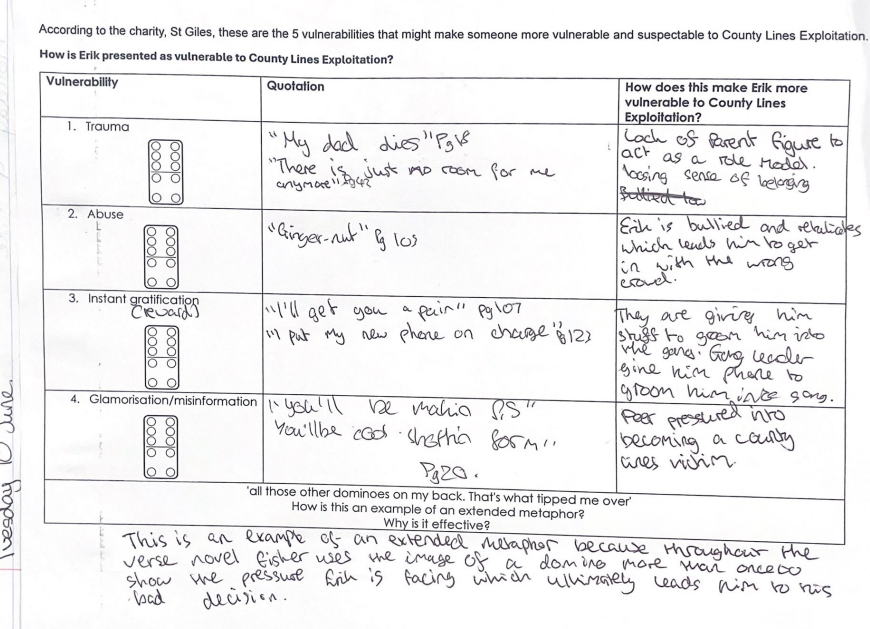 According to the charity, St Giles, these are the 5 vulnerabilities that might make someone more vulnerable and suspectable to County Lines Exploitation.
How is Erik presented as vulnerable to County Lines Exploitation?
Vulnerability
Quotation
How does this make Erik more
vulnerable to County Lines
Exploitation?
1. Trauma
"My dad dies" Pg18
"There is just no room for me
anymore" Pg42
Lack of Parent figure to
act as a role model.
loosing sense of belonging
2. Abuse
"Ginger-nut" Pg 105
Erik is bullied and retaliates
which leads him to get
in with the wrong
crowd.
3. Instant gratification
(reward)
"I'll get you a pair" pg107
"I put my new phone on charge"
They are giving him
stuff to groom him into
the gang. Gang leader
give him phone to
groom him into gang.
4. Glamorisation/misinformation
"you'll be makin
You'll be
Pg20.
Peer pressured into
becoming a county
lines victim.
'all those other dominoes on my back. That's what tipped me over'
How is this an example of an extended metaphor?
Why is it effective?
This is an example of an extended metaphor because throughout the
verse novel Fisher uses the image of a domino more than once to
show the pressure Erik is facing which ultimately leads him to his
bad decision.
Tuesday 10 June.